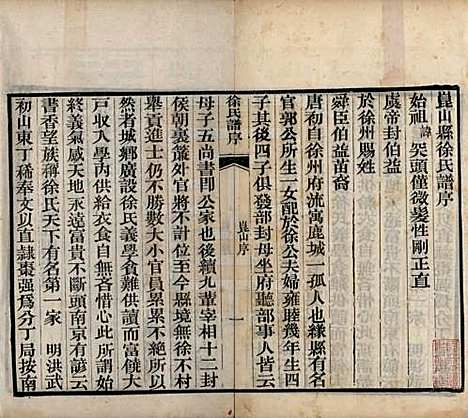 崑山縣徐氏譜序
始祖諱哭頭僅微髮性剛正直
虞帝封伯益
舜臣伯益苗裔
於徐州賜姓
唐初自徐州府流寓鹿城一孤人也緣縣有
官郭公所生一女配於徐公夫婦雍睦幾年生四
子其後四子俱發部封母坐府聽部事人皆云
徐氏譜序
崑山序
一
母子五尚書即公家也後續九輩宰相十二封
侯朝裏簾外官將不計位至於今縣境無徐不村
舉貢進士仍不能數十年來雖不出大小官員而徐俄
然者城鄉廣設徐氏義學貧難供讀而當供讀
戶收入學內供給衣食自始自終並無吝心此所謂始
終義氣感天地永遠富貴不斷頭南京有諺云
書香望族稱徐氏天下有名第一家
明洪武
初山東丁稀奉文以直隸棗强爲分丁局按南